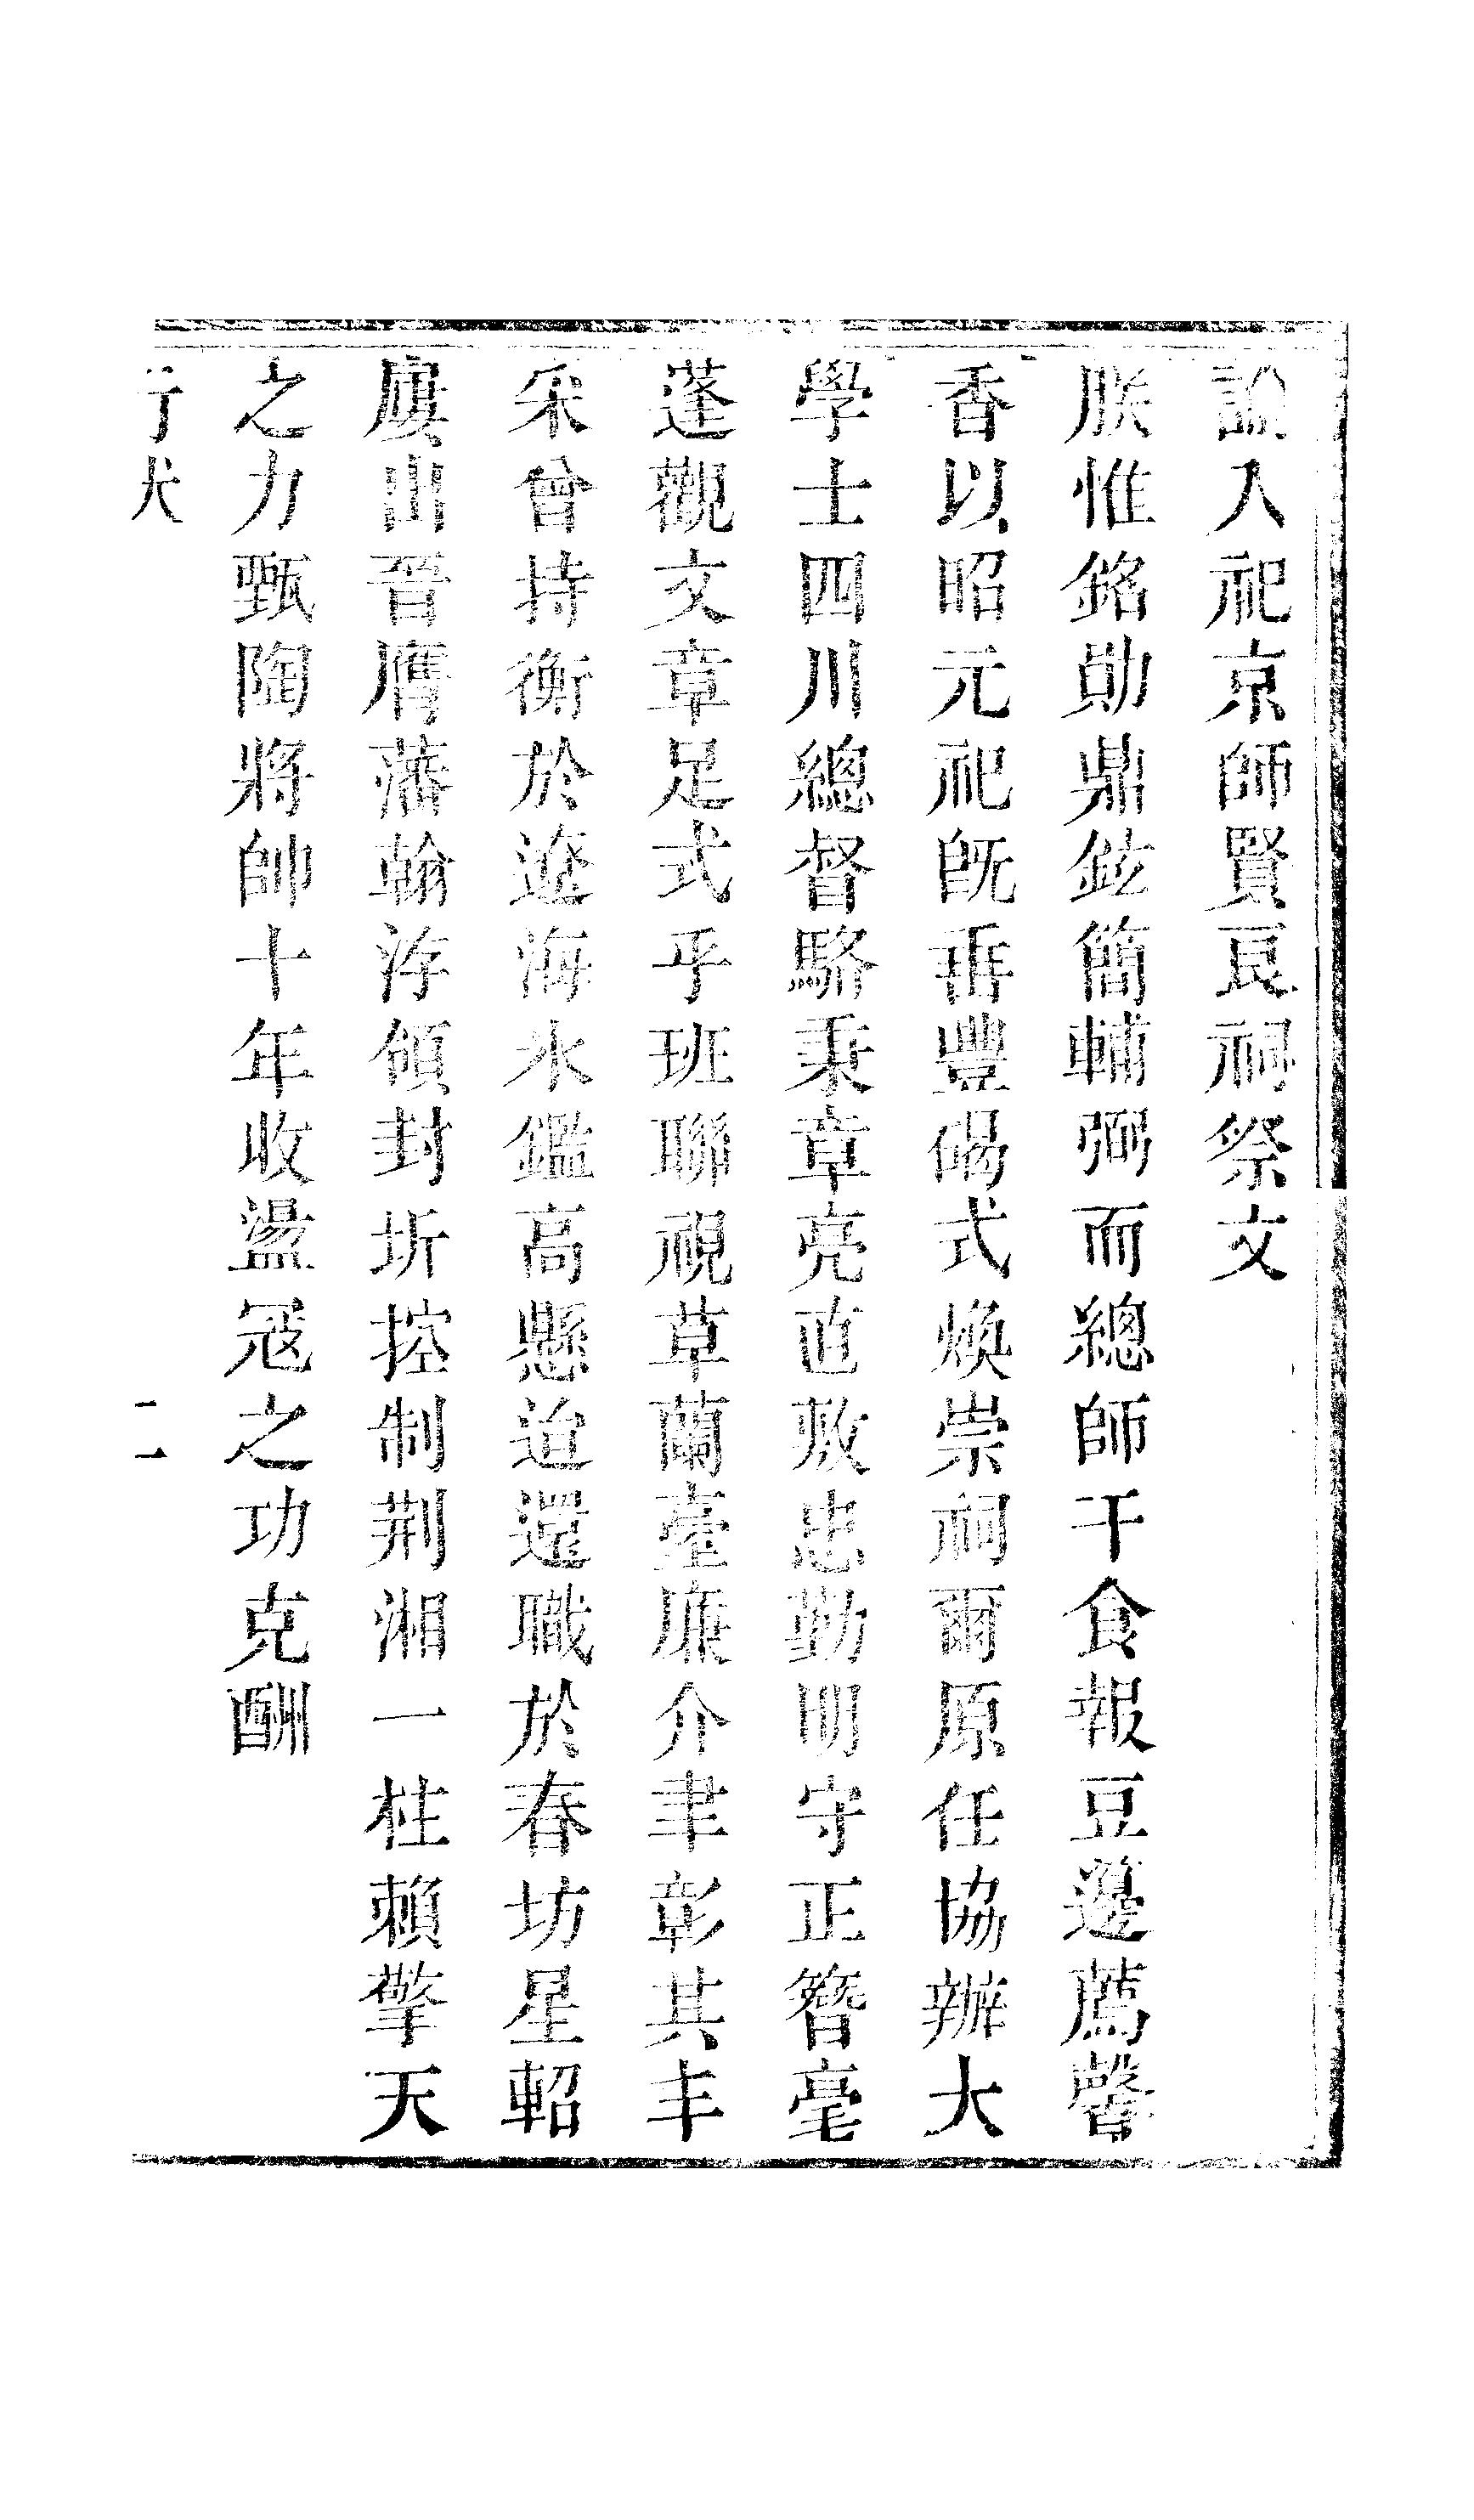 諭入祀京師賢良祠祭文
朕惟銘勛鼎鉉簡輔弼而總師干食報豆籩薦馨
香以昭元祀旣垂豐碣式煥崇祠爾原任協辦大
學士四川總督駱秉章亮直敬忠勤明守正簪毫
蓬觀文章足式乎班聯視草蘭臺廉介聿彰其丰
采曾持衡於遼海水鑑高懸迨還職於春坊星軺
屢出晉膺藩翰洊領封圻控制荆湘一柱賴擎天
之力甄陶將帥十年收盪寇之功克酬
行大 二